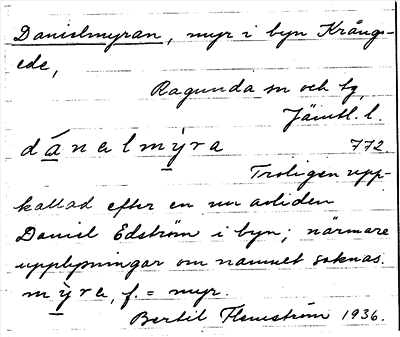 Danielmyran, myr i byn Krång-
ede,
Ragunda sn och tg,
Jämtl. l.
dánelmýra 772.
Troligen upp-
kallad efter en nu avliden
Daniel Edström i byn; närmare
upplysningar om namnet saknas.
mỳre, f. = myr.
Bertil Flemström 1936.